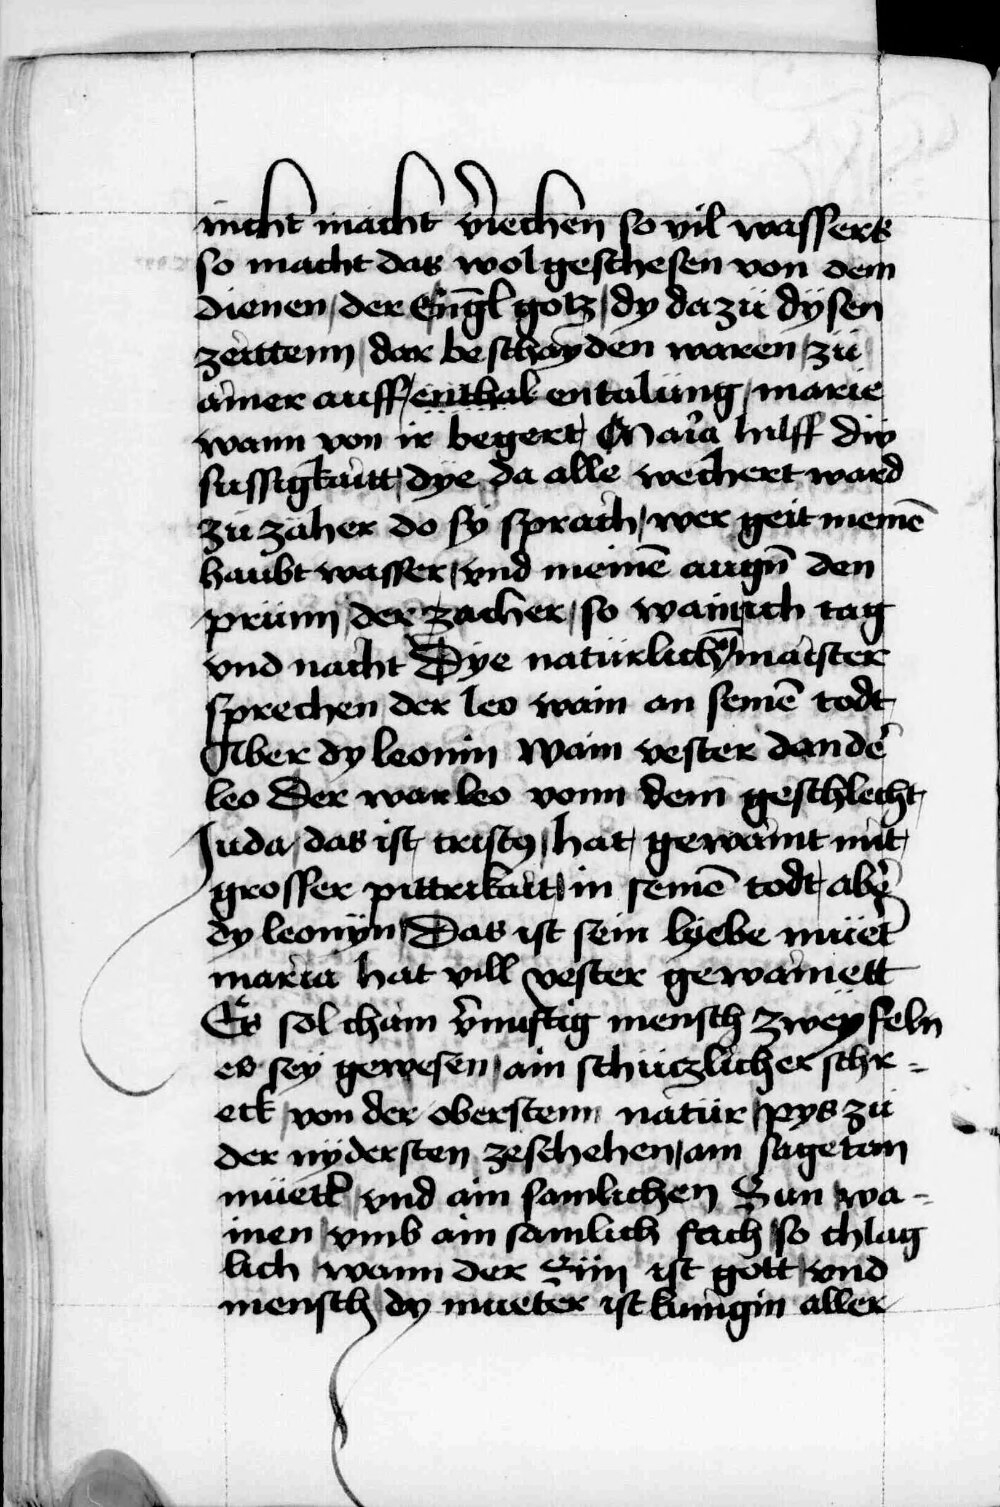 nicht macht v̄iechen so vil wassers
so macht das wol geschesen von dem
dienen / der Engl̄ gotz / dy da zü dÿsen
zeittenn / dar beschayden waren / zü
ainer auff / enthal entalüng / marie
wann von ir begert / Maria hilff diy
sussigkaitt / dye da alle wechert ward
zü zäher do sy sprach / wer geit meinē
haubt wasser / vnd meinē augn̄ den
prünn / der zacher / so wain ich tag
vnd nacht Dye natürlichn̄ / maister
sprechen der leo wain an seinē todt
Aber dy leonin wain vester dan dē
leo Der war leo vonn dem geschlecht
Juda / das ist / cristꝰ / hat / gewaint mit
grosser pittrikait / in seinē todt / abē
dy leonÿn / Das ist sein lÿebe müet̄
maria hat vill vester gewainett
Es sol cham v̄nuftig mensch zweÿfeln
es seÿ gewesen / ain schüczlicher schr-
eck / von der oberstenn natür / pys zü
der nÿdersten zeschehen / ain sagetan
müett̄ vnd ain samlichen Sun wa-
inen / vmb ain samlich sach / so chlag
lich wann der Sün ist gott / vnd
mensch dy mueter ist kunigin aller